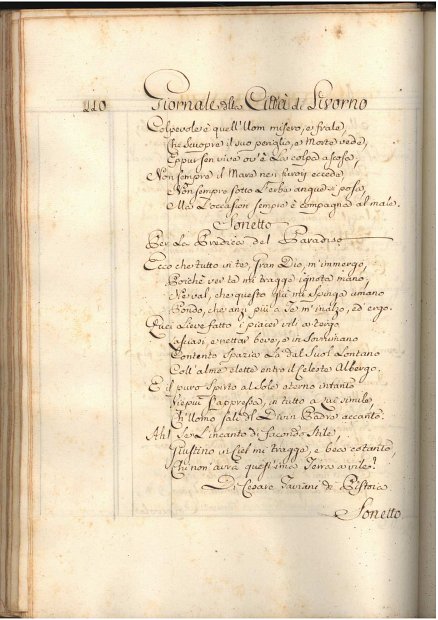 110 Giornale della Città di Livorno
Colpevole è quell'Uom misero, e frale,
Che scuopre il suo periglio, e Morte vede,
Eppur sen vive ov'è La colpa ascosa,
Non sempre il Mare nei furori eccede,
Non sempre sotto L'erba angue si posa,
Ma L'occasion sempre è compagna al male.
Sonetto
Per La Predica del Paradiso
Ecco che tutto in te, Gran Dio, m'immergo,
Poichè ver te mi tragge ignota mano,
Nè val, che questa quì mi Spinga umano
Pondo, che anzi più a Te m'inalzo, ed ergo.
Quei Lieve fatto i piacer vili a tergo
Lasciai, e nettar bevo, e in Sovrumano
Contento Spazio La dal Suol Lontano
Coll'alme elette entro il Celeste Albergo.
E il puro Spirto al Sole eterno intanto
Viepiù S'appressa, in tutto a Lui simile,
Ch'Uomo Salì al Divin Padre accanto.
Ah! Se L'incanto di facondo Stile,
Giustino in Ciel mi tragge, e bea cotanto,
Chi non avrà quest'ima Terra a vile?
Di Cesare Taviani di Pistoia
Sonetto